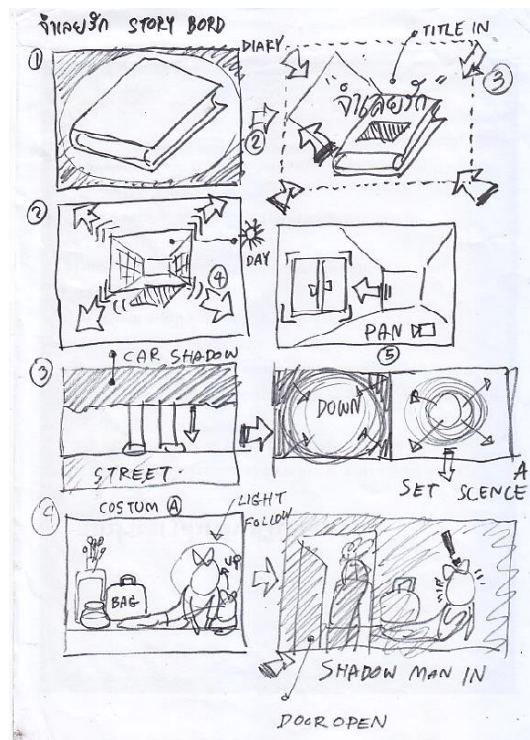 จำเลยรัก STORY BORD
①
DIARY
TITLE IN
②
จำเลยรัก
③
②
④
DAY
PAN
⑤
CAR SHADOW
③
STREET.
DOWN
A
SET SCENCE
④
COSTUM Ⓐ
LIGHT
FOLLOW
UP
BAG
SHADOW MAN IN
DOOR OPEN